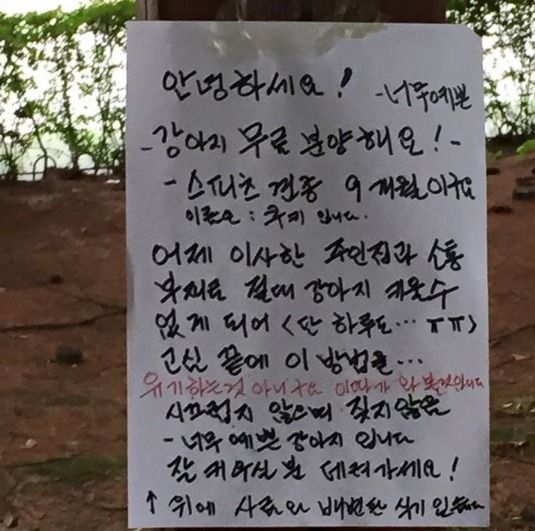 안녕하세요!
-너무예쁜
-강아지 무료 분양해요!-
-스피츠 견종 9개월이구요
이름은: 쿠키 입니다.
어제 이사한 주인집과 소통
부재로 절대 강아지 키울수
없게 되어 <단 하루도... ㅠㅠ>
고심 끝에 이 방법을...
유기하는것 아니구요 이따가 와 볼것입니다
시끄럽지 않으며 짖지않음
-너무 예쁜 강아지 입니다
잘 키우실 분 데려가세요!
↑ 위에 사료와 배변판 식기 있습니다